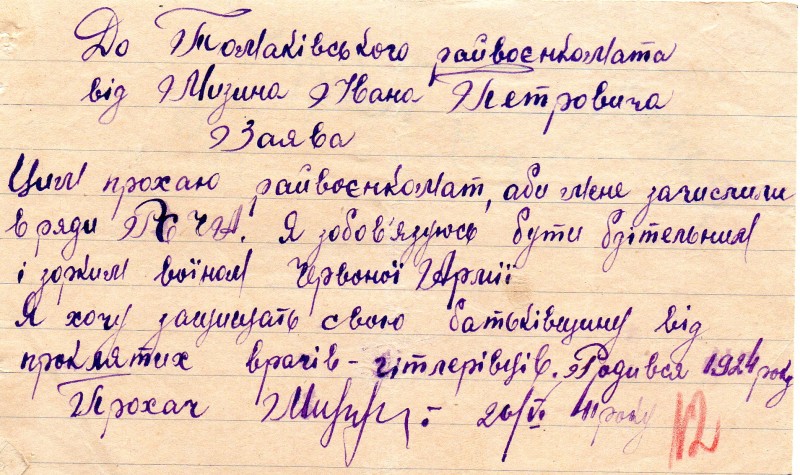 До Томаківського райвоєнкомата
від Мизина Івана Петровича
Заява
Цим прохаю райвоєнкомат, аби мене зачислили
в ряди РСЧА. Я зобов'язуюсь бути бдітельним
і зорким воїном Червоної Армії
Я хочу защищать свою батьківщину від
проклятих врачів - гітлерівців. Родився 1924 року
Прохач 26/VI 41 року
12